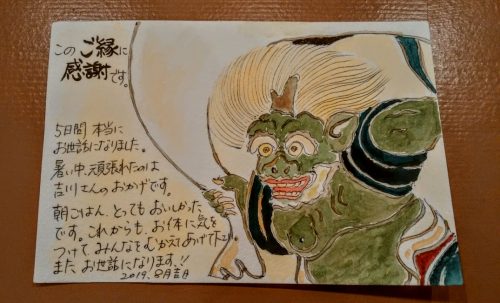 この ご縁に
感謝です。
5日間 本当に
お世話になりました。
暑い中、頑張れたのは
吉川さんのおかげです。
朝ごはん、とってもおいしかった
です。これからも、お体に気を
つけて みんなをむかえてあげて下さい。
また、お世話になります!!
2019.8月吉日